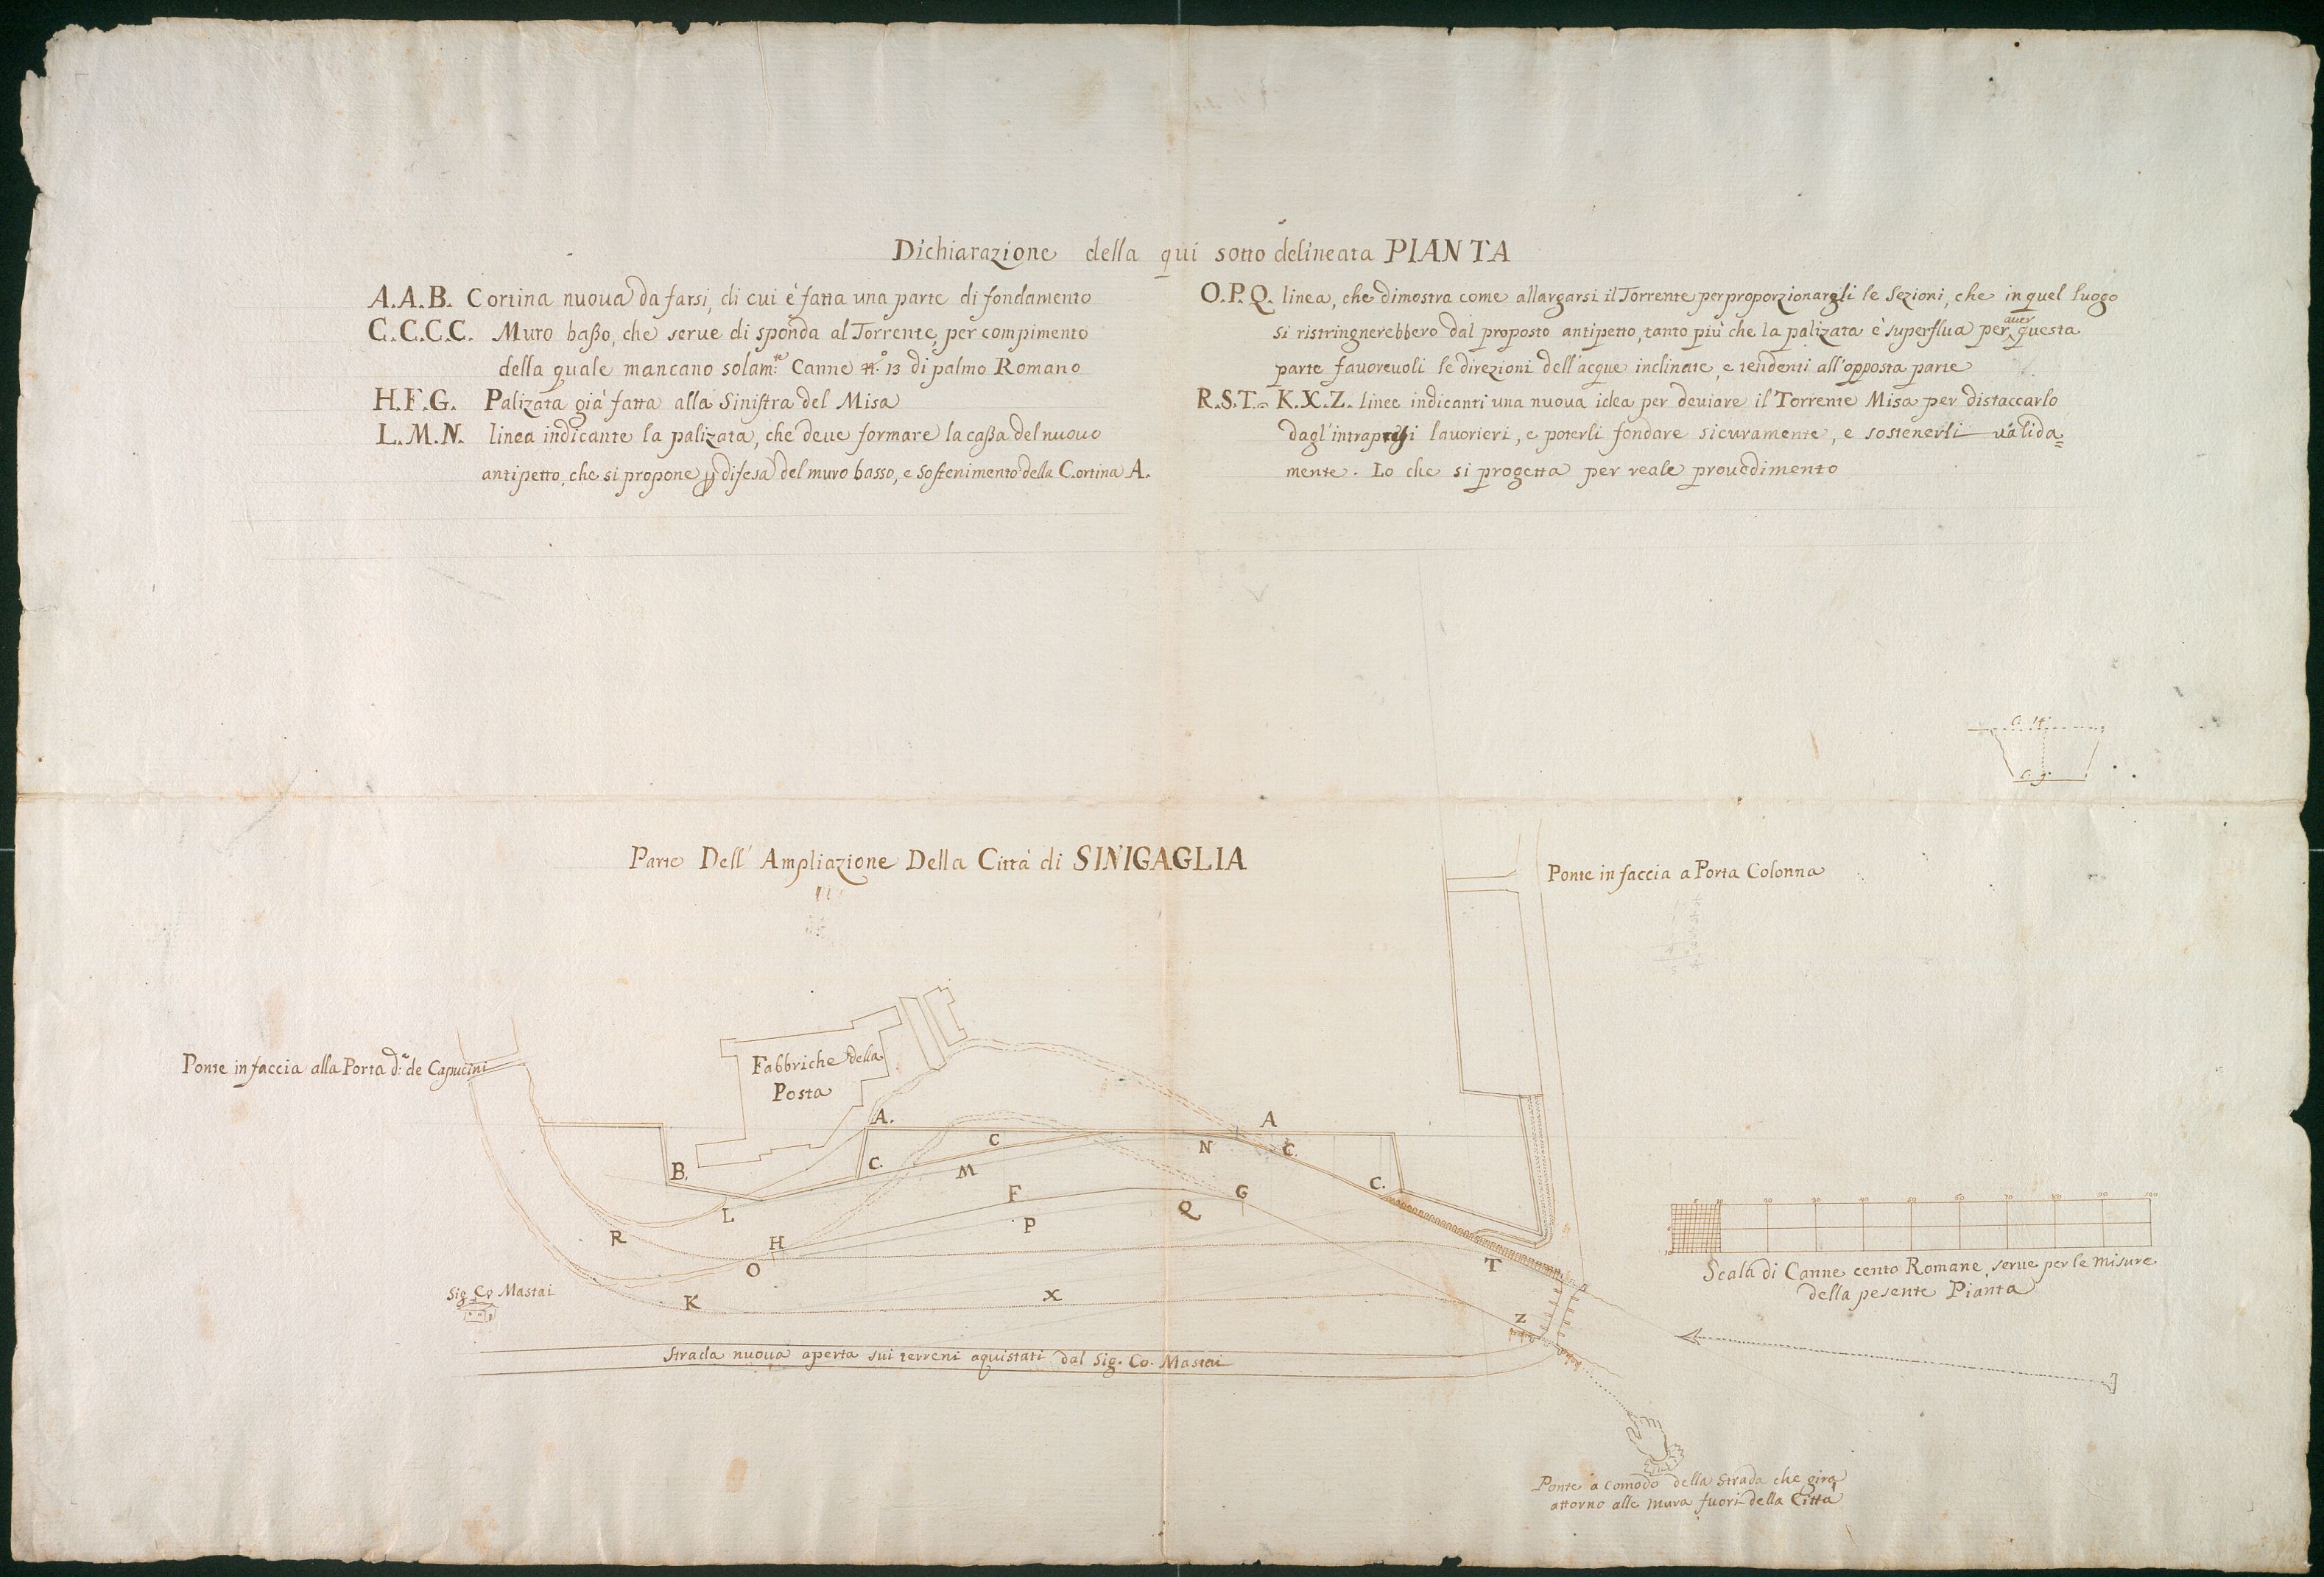 Dichiarazione della qui sotto delineata PIANTA
A.A.B. Cortina nuoua da farsi, di cui è fatta una parte di fondamento
C.C.C.C. Muro baßo, che serue di sponda al Torrente, per compimento
della quale mancano solam.te Canne n.o 13 di palmo Romano
H.F.G. Palizata già fatta alla Sinistra del Misa
L.M.N. linea indicante la palizata, che deue formare la caßa del nuouo
antipetto, che si propone ꝑ difesa del muro basso, e sostenimento della Cortina A.
O.P.Q. linea, che dimostra come allargarsi il Torrente per proporzionargli le Sezioni, che in quel luogo
si ristringnerebbero dal proposto antipetto, tanto più che la palizata è superflua per auer questa
parte fauoreuoli le direzioni dell'acque inclinate, e tendenti all'opposta parte
R.S.T.- K.X.Z. linee indicanti una nuoua idea per deuiare il Torrente Misa per distaccarlo
dagl'intrapresi lauorieri, e poterli fondare sicuramente, e sostenerli ualida=
mente. Lo che si progetta per reale prouedimento
C. 14.
C. 9.
Parte Dell' Ampliazione Della Città di SINIGAGLIA
Ponte in faccia a Porta Colonna
Ponte in faccia alla Porta d.a de Capucini
Fabbriche della
Posta
A.
A
C
C.
M
N
C.
B.
C.
L
F
G
Q
P
R
H
O
T
K
X
Z
Sig. Co Mastai
Strada nuoua aperta sui terreni aquistati dal Sig. Co. Mastai
5 10 20 30 40 50 60 70 80 90 100
10
Scala di Canne cento Romane, serue per le misure
della pesente Pianta
Ponte a comodo della Strada che gira
attorno alle mura fuori della Città